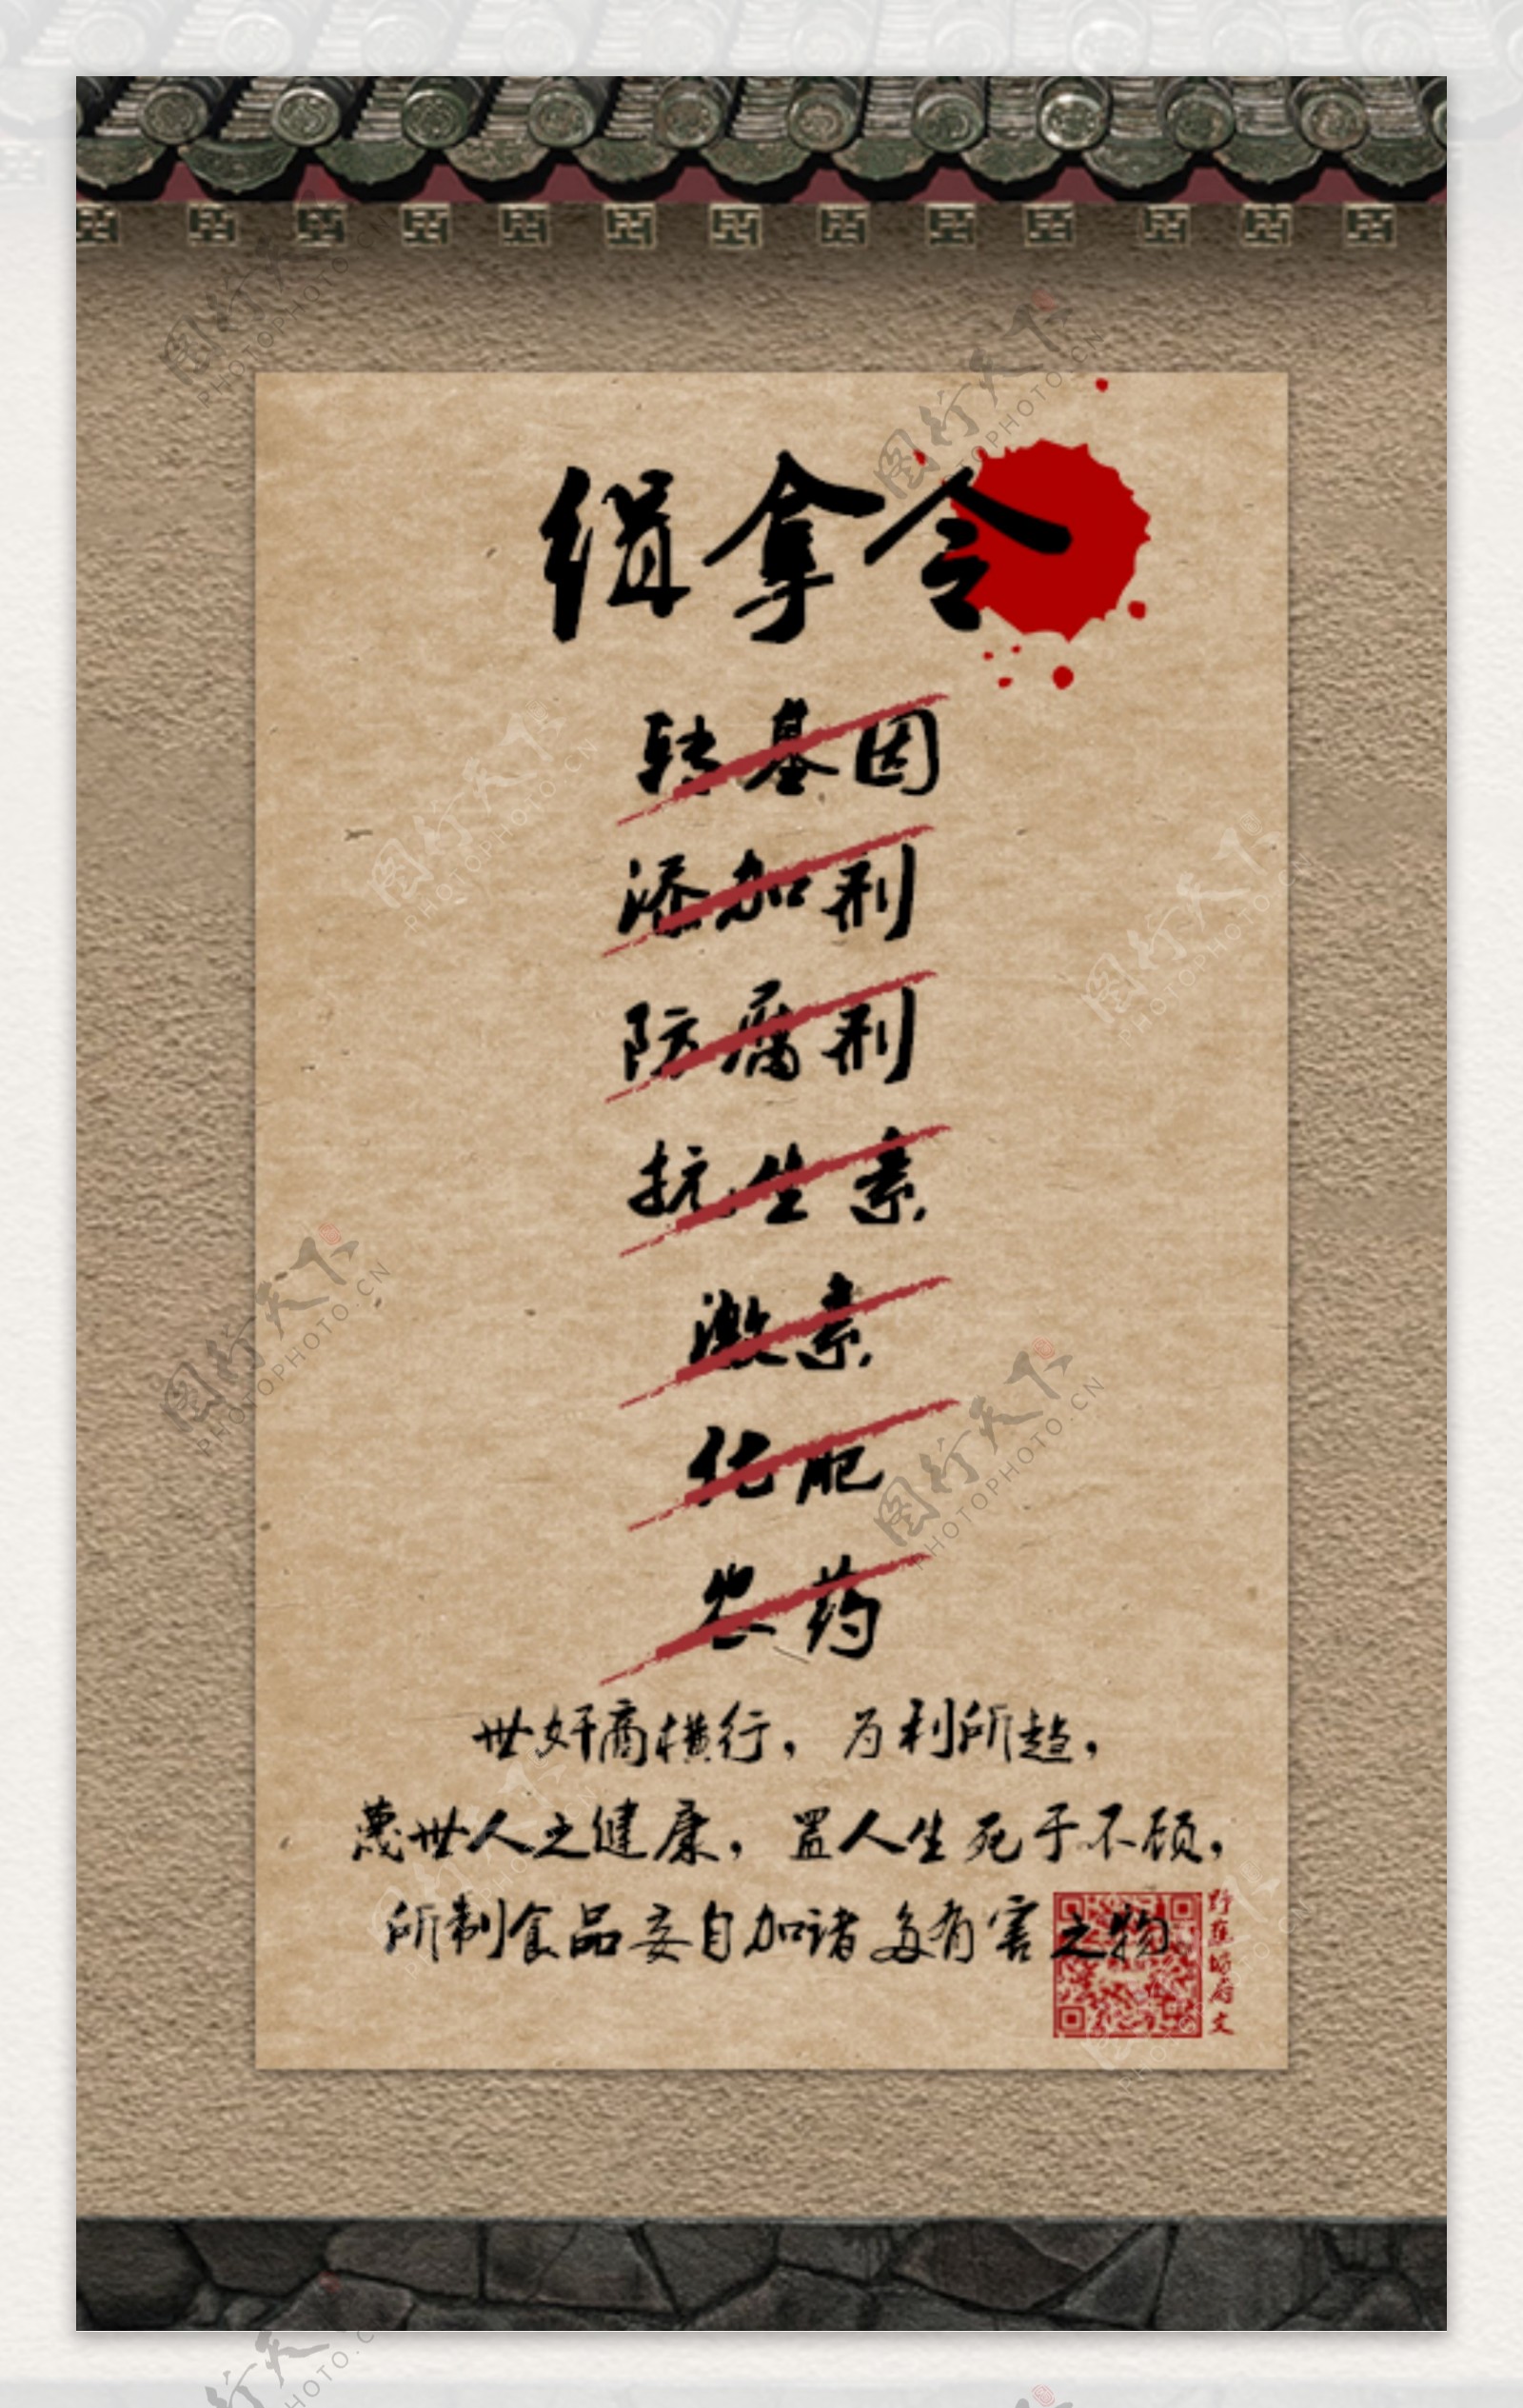 缉拿令
转基因
添加剂
防腐剂
抗生素
激素
化肥
农药
世奸商横行，为利所趋，
蔑世人之健康，置人生死于不顾，
所制食品妄自加诸多有害之物
图行天下
PHOTOPHOTO.CN